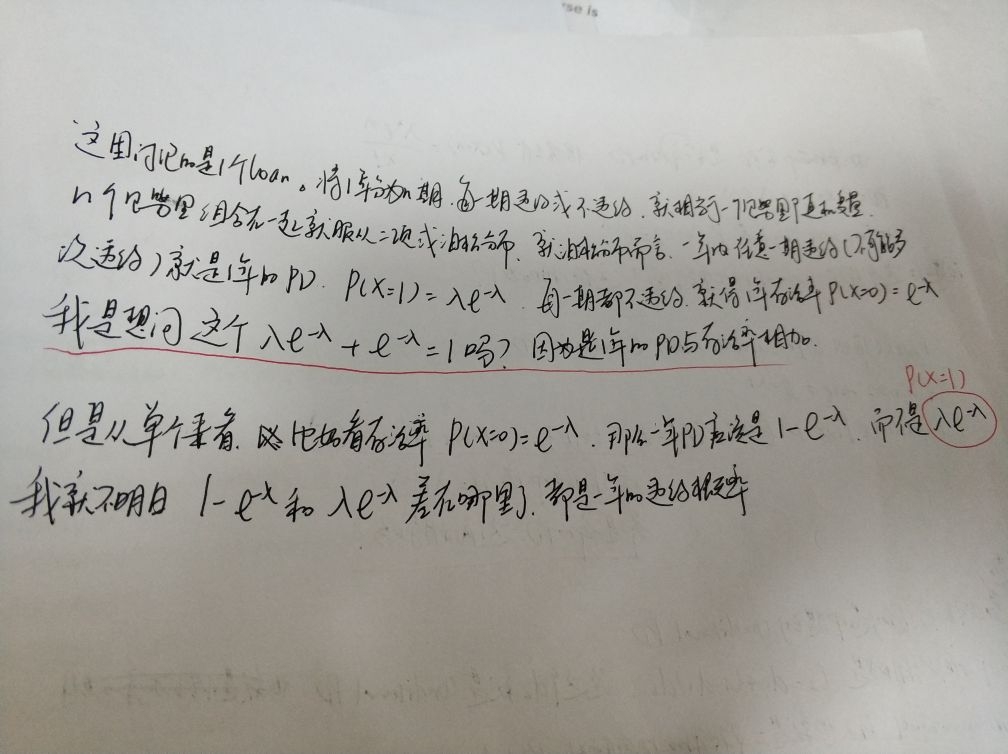 se is
这里讨论的是1个loan。将1年分为n期，每一期违约或不违约，就相当于一个伯努里随机变量.
n个伯努里组合在一起就服从二项或泊松分布，就泊松分布而言，一年内任意一期违约（不可能多
次违约）就是1年的PD. P(X=1)=λe^-λ. 每一期都不违约，就得1年存活率P(X=0)=e^-λ
我是想问这个λe^-λ+e^-λ=1吗？因为是1年的PD与存活率相加.
P(X=1)
但是从单个来看，比如看存活率 P(X=0)=e^-λ. 那么一年PD应该是1-e^-λ，而不是λe^-λ
我就不明白 1-e^-λ和λe^-λ差在哪里了，都是一年的违约概率